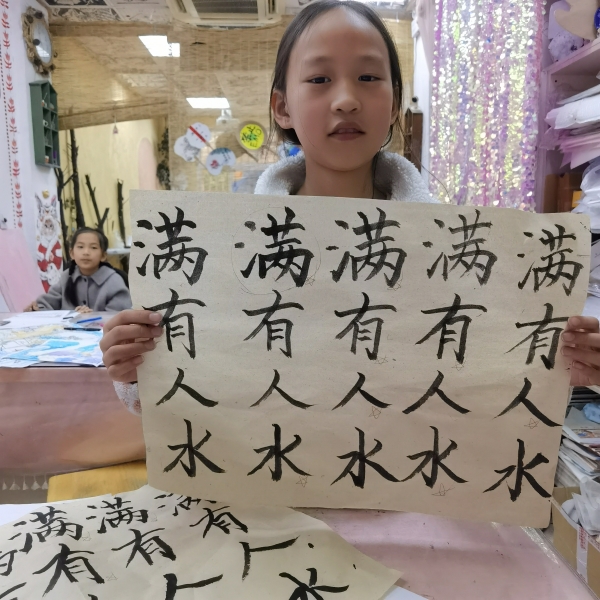 满满满满满
有有有有有
人人人人人
水水水水水
满满满
有有有
人人
水